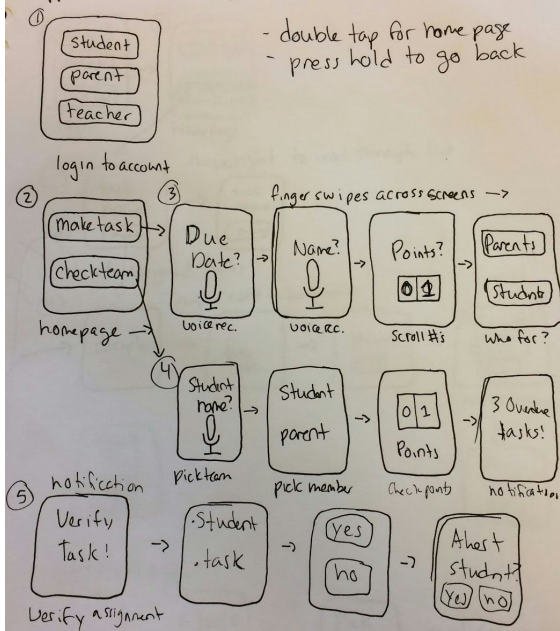 ①
student
parent
teacher
login to account
- double tap for home page
- press hold to go back
②
make task
check team
homepage
③
finger swipes across screens
Due
Date?
voice rec.
Name?
voice rec.
Points?
0 1
Scroll #s
Parents
Student
Who for?
④
Student
name?
pick team
Student
parent
pick member
0 1
Points
Check points
3 Overdue
tasks!
notification
⑤
notification
Verify
Task!
Verify assignment
.Student
.task
yes
no
Student?
Yes
no